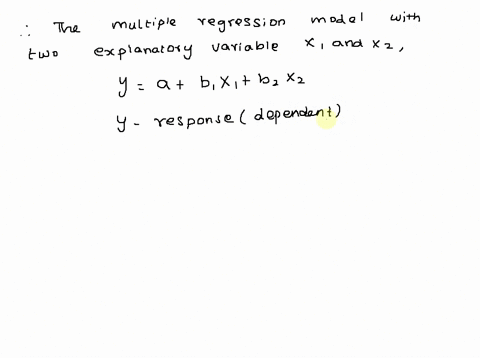 ∴ The multiple regression model with
two explanatory variable x₁ and x₂,
y = a + b₁x₁ + b₂x₂
y - response (dependent)